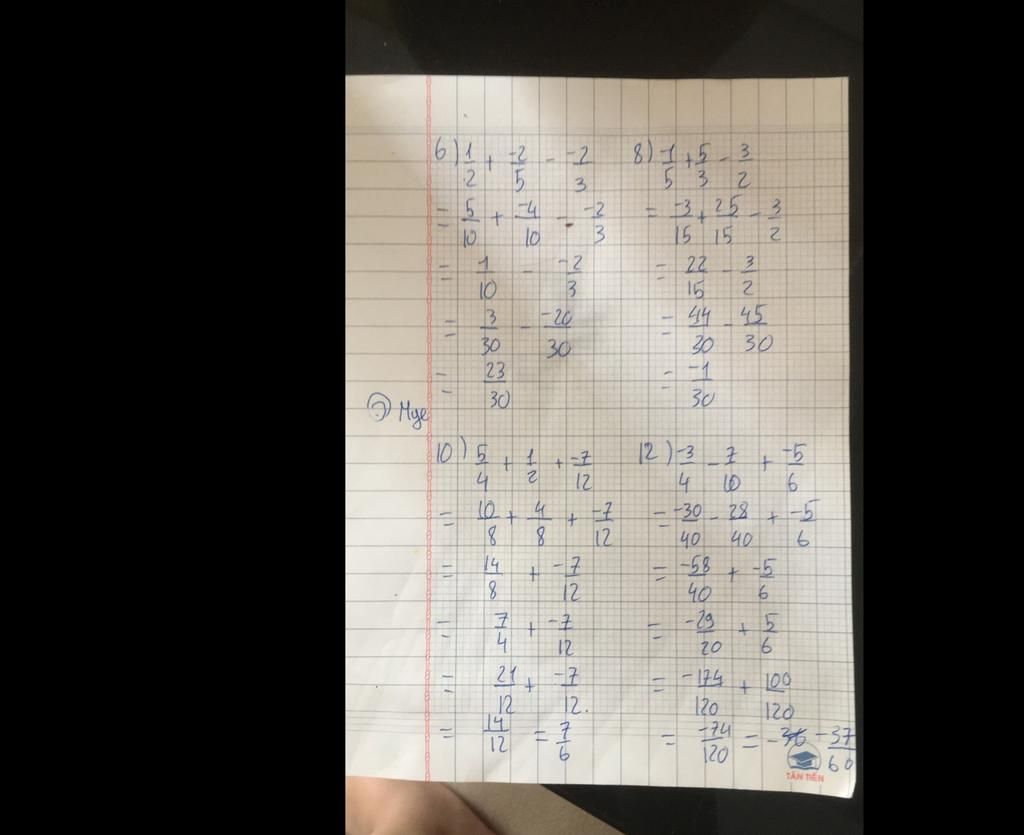 6) 1/2 + -2/5 - -2/3
= 5/10 + -4/10 - -2/3
= 1/10 - -2/3
= 3/30 - -20/30
= 23/30
8) -1/5 + 5/3 - 3/2
= -3/15 + 25/15 - 3/2
= 22/15 - 3/2
= 44/30 - 45/30
= -1/30
10) 5/4 + 1/2 + -7/12
= 10/8 + 4/8 + -7/12
= 14/8 + -7/12
= 7/4 + -7/12
= 21/12 + -7/12.
= 14/12 = 7/6
12) -3/4 - 7/10 + -5/6
= -30/40 - 28/40 + -5/6
= -58/40 + -5/6
= -29/20 + 5/6
= -174/120 + 100/120
= -74/120 = -37/60
TÂN TIẾN